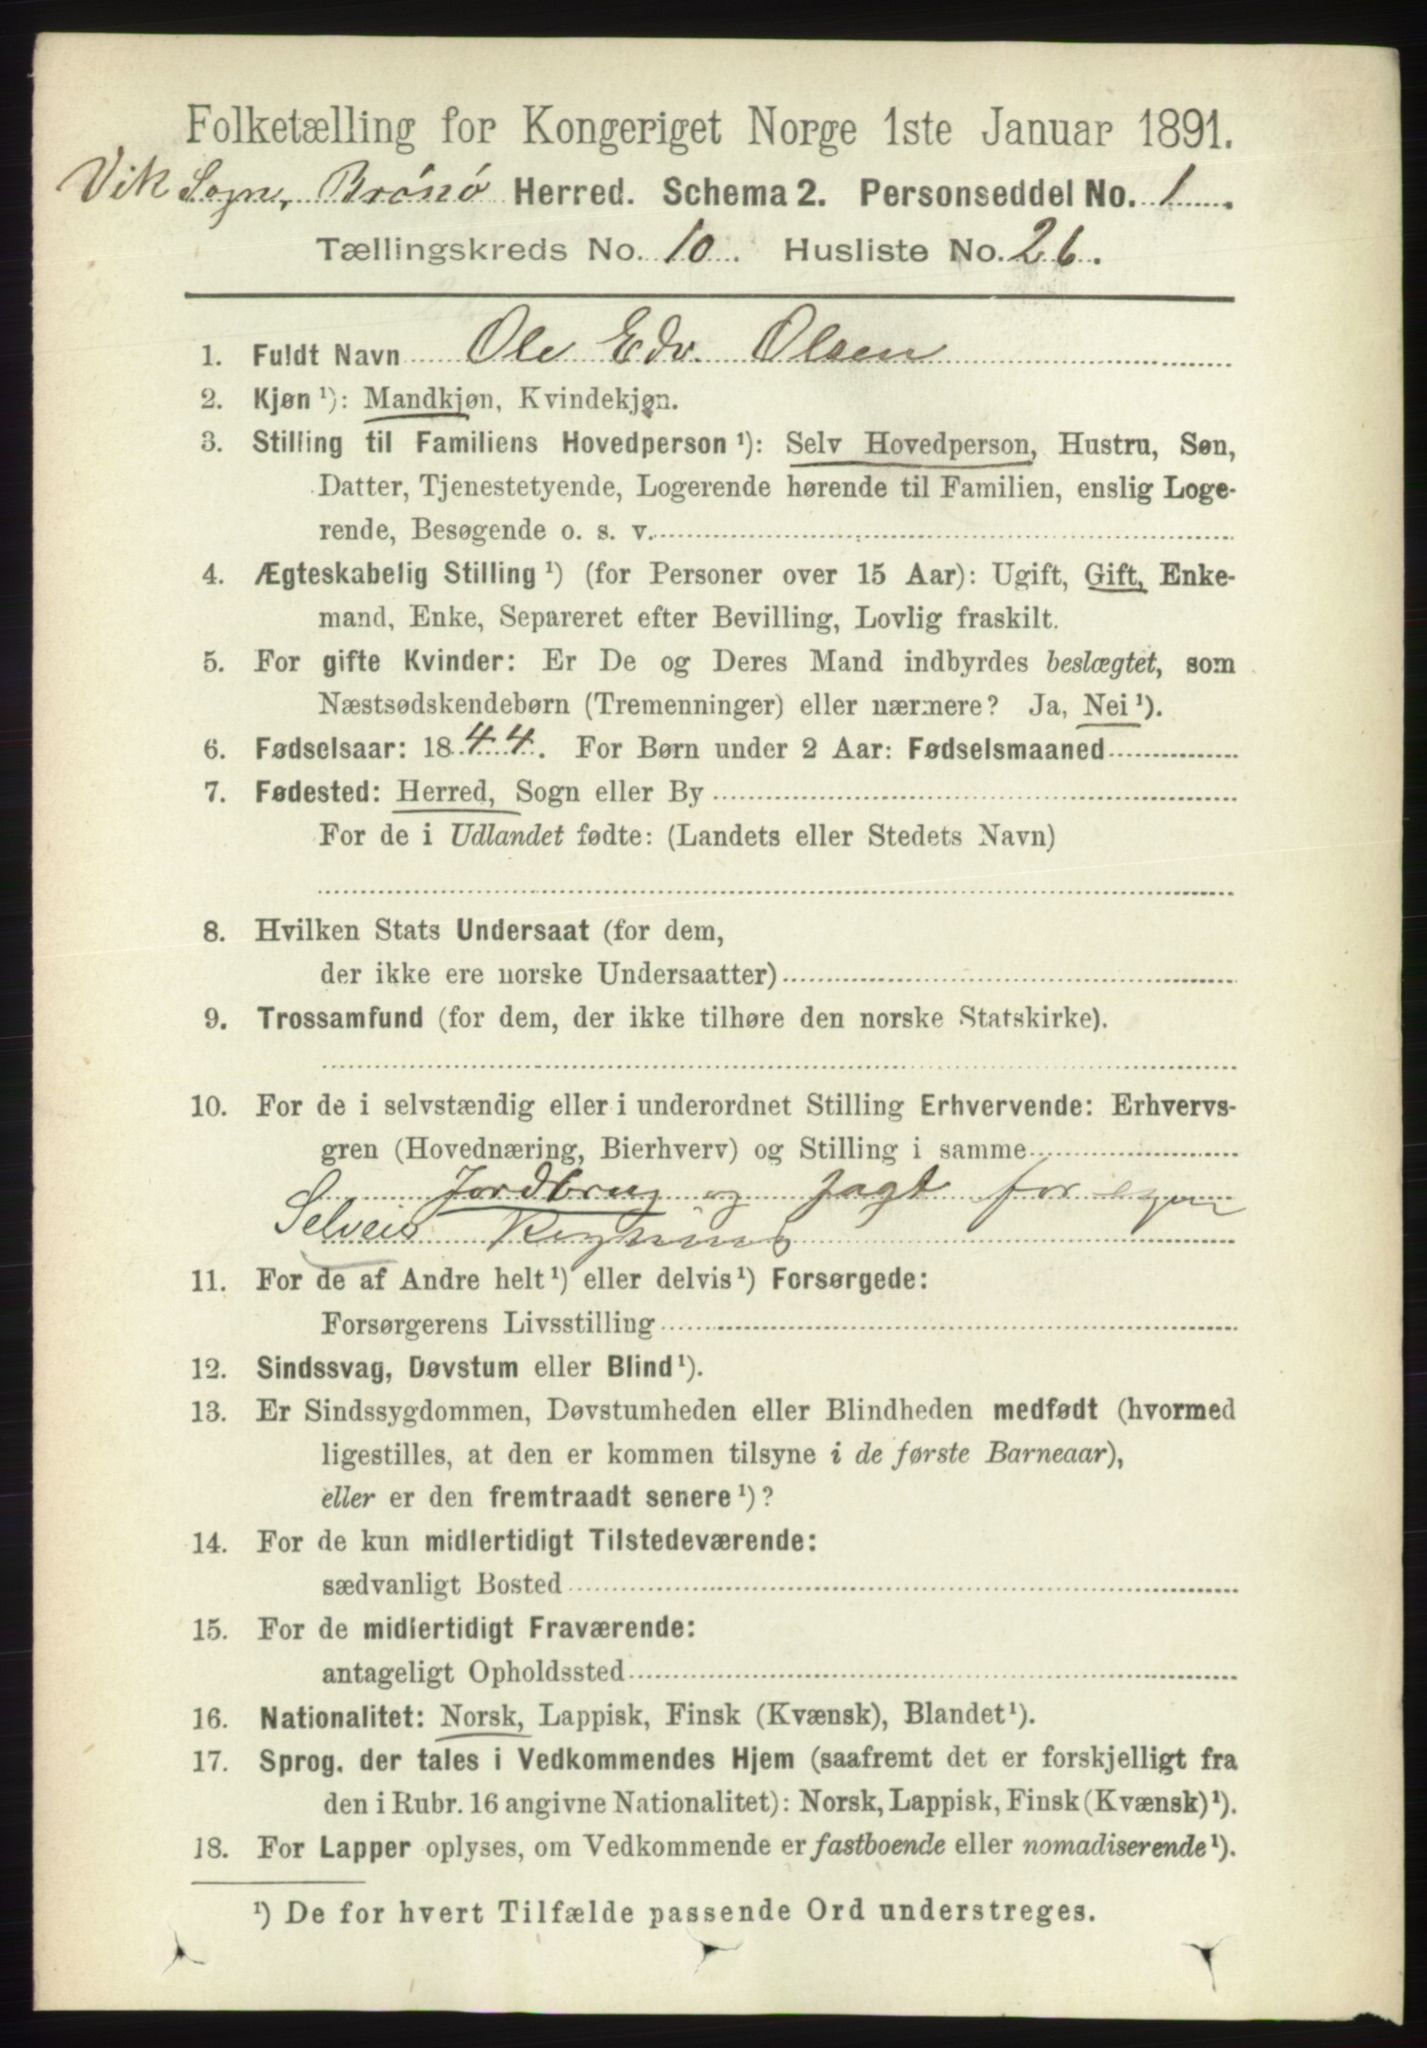 Folketælling for Kongeriget Norge 1ste Januar 1891.
Vik Sogn, Brönö Herred. Schema 2. Personseddel No. 1.
Tællingskreds No. 10. Husliste No. 26.
1. Fuldt Navn Ole Edv. Olsen
2. Kjøn ¹): Mandkjøn, Kvindekjøn.
3. Stilling til Familiens Hovedperson ¹): Selv Hovedperson, Hustru, Søn,
Datter, Tjenestetyende, Logerende hørende til Familien, enslig Loge-
rende, Besøgende o. s. v.
4. Ægteskabelig Stilling ¹) (for Personer over 15 Aar): Ugift, Gift, Enke-
mand, Enke, Separeret efter Bevilling, Lovlig fraskilt.
5. For gifte Kvinder: Er De og Deres Mand indbyrdes beslægtet, som
Næstsødskendebørn (Tremenninger) eller nærmere? Ja, Nei ¹).
6. Fødselsaar: 1844. For Børn under 2 Aar: Fødselsmaaned
7. Fødested: Herred, Sogn eller By
For de i Udlandet fødte: (Landets eller Stedets Navn)
8. Hvilken Stats Undersaat (for dem,
der ikke ere norske Undersaatter)
9. Trossamfund (for dem, der ikke tilhøre den norske Statskirke).
10. For de i selvstændig eller i underordnet Stilling Erhvervende: Erhvervs-
gren (Hovednæring, Bierhverv) og Stilling i samme
Jordbrug og Jagt for egen
Selveier Regning
11. For de af Andre helt ¹) eller delvis ¹) Forsørgede:
Forsørgerens Livsstilling
12. Sindssvag, Døvstum eller Blind ¹).
13. Er Sindssygdommen, Døvstumheden eller Blindheden medfødt (hvormed
ligestilles, at den er kommen tilsyne i de første Barneaar),
eller er den fremtraadt senere ¹)?
14. For de kun midlertidigt Tilstedeværende:
sædvanligt Bosted
15. For de midlertidigt Fraværende:
antageligt Opholdssted
16. Nationalitet: Norsk, Lappisk, Finsk (Kvænsk), Blandet ¹).
17. Sprog, der tales i Vedkommendes Hjem (saafremt det er forskjelligt fra
den i Rubr. 16 angivne Nationalitet): Norsk, Lappisk, Finsk (Kvænsk) ¹).
18. For Lapper oplyses, om Vedkommende er fastboende eller nomadiserende ¹).
¹) De for hvert Tilfælde passende Ord understreges.